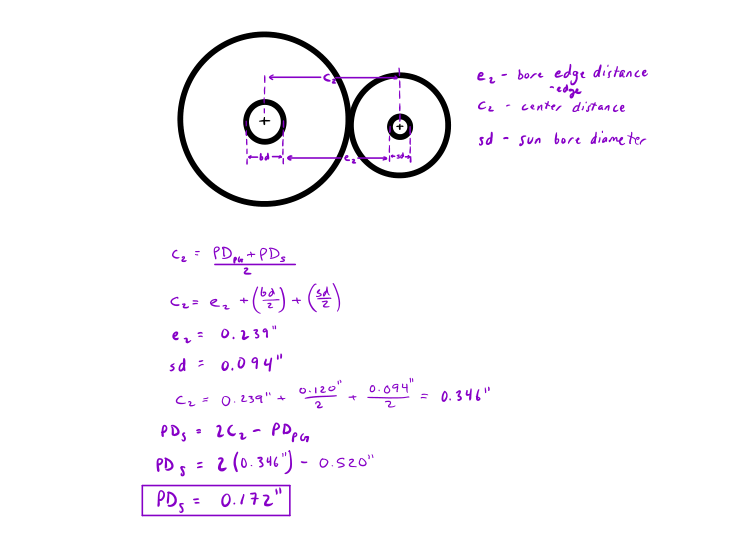 c₂
bd
e₂
sd
e₂ - bore edge distance
-edge
c₂ - center distance
sd - sun bore diameter
c₂ = (PD_PG + PD_s)/2
c₂ = e₂ + (bd/2) + (sd/2)
e₂ = 0.239"
sd = 0.094"
c₂ = 0.239" + 0.120"/2 + 0.094"/2 = 0.346"
PD_s = 2C₂ - PD_PG
PD_s = 2(0.346") - 0.520"
PD_s = 0.172"